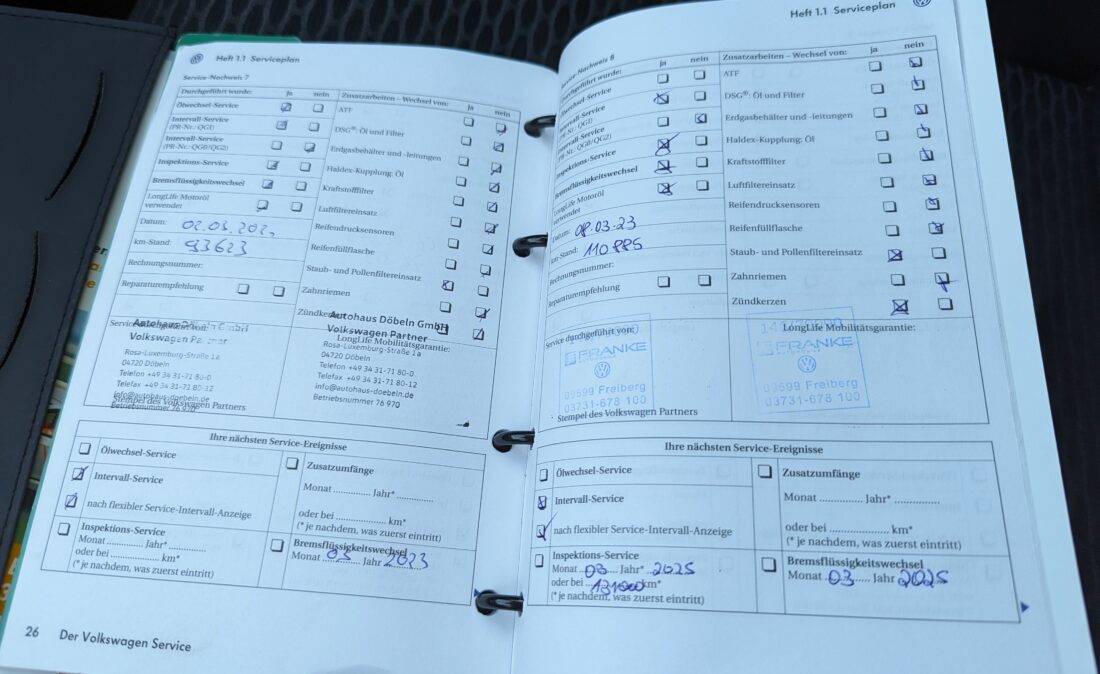 Heft 1.1 Serviceplan
Service-Nachweis 7
Durchgeführt wurde: ja nein
Ölwechsel-Service
Intervall-Service
(PR-Nr.: QG1)
Intervall-Service
(PR-Nr.: QG0/QG2)
Inspektions-Service
Bremsflüssigkeitswechsel
LongLife Motoröl
verwendet
Datum: 02.03.202
km-Stand: 93623
Rechnungsnummer:
Reparaturempfehlung
Zusatzarbeiten – Wechsel von: ja nein
ATF
DSG®: Öl und Filter
Erdgasbehälter und -leitungen
Haldex-Kupplung: Öl
Kraftstofffilter
Luftfiltereinsatz
Reifendrucksensoren
Reifenfüllflasche
Staub- und Pollenfiltereinsatz
Zahnriemen
Zündkerzen
Service durchgeführt von:
Autohaus Döbeln GmbH
Volkswagen Partner
Rosa-Luxemburg-Straße 1a
04720 Döbeln
Telefon +49 34 31-71 80-0
Telefax +49 34 31-71 80-12
info@autohaus-doebeln.de
Betriebsnummer 76 970
Stempel des Volkswagen Partners
Autohaus Döbeln GmbH
Volkswagen Partner
LongLife Mobilitätsgarantie:
Rosa-Luxemburg-Straße 1a
04720 Döbeln
Telefon +49 34 31-71 80-0
Telefax +49 34 31-71 80-12
info@autohaus-doebeln.de
Betriebsnummer 76 970
Ihre nächsten Service-Ereignisse
Ölwechsel-Service
Intervall-Service
nach flexibler Service-Intervall-Anzeige
Inspektions-Service
Monat ......... Jahr* ............
oder bei ....................... km*
(* je nachdem, was zuerst eintritt)
Zusatzumfänge
Monat ............ Jahr* ............
oder bei ....................... km*
(* je nachdem, was zuerst eintritt)
Bremsflüssigkeitswechsel
Monat 03 Jahr 2023
26 Der Volkswagen Service
Heft 1.1 Serviceplan
Service-Nachweis 8
Durchgeführt wurde: ja nein
Ölwechsel-Service
Intervall-Service
(PR-Nr.: QG1)
Intervall-Service
(PR-Nr.: QG0/QG2)
Inspektions-Service
Bremsflüssigkeitswechsel
LongLife Motoröl
verwendet
Datum: 08.03.23
km-Stand: 110885
Rechnungsnummer:
Reparaturempfehlung
Zusatzarbeiten – Wechsel von: ja nein
ATF
DSG®: Öl und Filter
Erdgasbehälter und -leitungen
Haldex-Kupplung: Öl
Kraftstofffilter
Luftfiltereinsatz
Reifendrucksensoren
Reifenfüllflasche
Staub- und Pollenfiltereinsatz
Zahnriemen
Zündkerzen
Service durchgeführt von:
FRANKE
09599 Freiberg
03731-678 100
Stempel des Volkswagen Partners
LongLife Mobilitätsgarantie:
FRANKE
09599 Freiberg
03731-678 100
Ihre nächsten Service-Ereignisse
Ölwechsel-Service
Intervall-Service
nach flexibler Service-Intervall-Anzeige
Inspektions-Service
Monat 03 Jahr* 2025
oder bei 131000 km*
(* je nachdem, was zuerst eintritt)
Zusatzumfänge
Monat ............ Jahr* ............
oder bei ....................... km*
(* je nachdem, was zuerst eintritt)
Bremsflüssigkeitswechsel
Monat 03 Jahr 2025